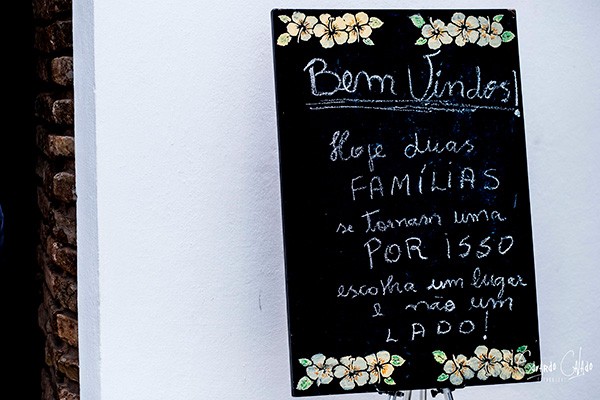 Bem Vindos!
Hoje duas
FAMÍLIAS
se tornam uma,
POR ISSO
escolha um lugar
e não um
LADO!